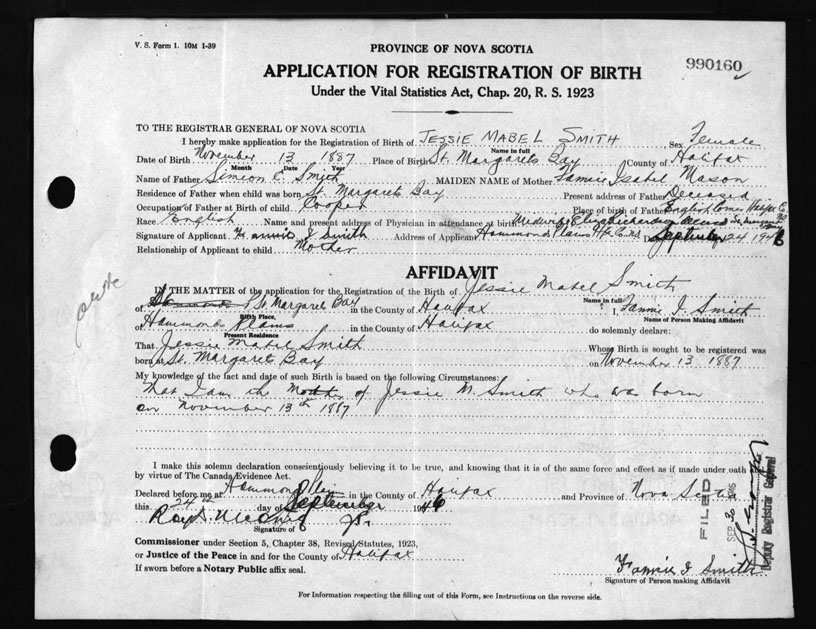 V. S. Form 1. 10M 1-39
PROVINCE OF NOVA SCOTIA
990160
APPLICATION FOR REGISTRATION OF BIRTH
Under the Vital Statistics Act, Chap. 20, R. S. 1923
TO THE REGISTRAR GENERAL OF NOVA SCOTIA
I hereby make application for the Registration of Birth of JESSIE MABEL SMITH Sex Female
Name in full
Date of Birth November 13 1887 Place of Birth St. Margarets Bay County of Halifax
Month Date Year
Name of Father Simeon C. Smith MAIDEN NAME of Mother Fannie Isabel Mason
Residence of Father when child was born St. Margarets Bay Present address of Father Deceased
Occupation of Father at Birth of child Cooper Place of birth of Father English Corner Halifax C
Race English Name and present address of Physician in attendance at birth Midwife
Signature of Applicant Fannie I Smith Address of Applicant Hammonds Plains Hfx Co. N.S. September 24 1946
Relationship of Applicant to child Mother
AFFIDAVIT
IN THE MATTER of the application for the Registration of the Birth of Jessie Mabel Smith
Name in full
of St Margaret Bay in the County of Halifax I, Fannie I. Smith
Birth Place, Name of Person Making Affidavit
of Hammonds Plains in the County of Halifax do solemnly declare:
Present Residence
That Jessie Mabel Smith Whose Birth is sought to be registered was
born at St. Margarets Bay on November 13 1887
My knowledge of the fact and date of such Birth is based on the following Circumstances:
That I am the Mother of Jessie M. Smith who was born
on November 13th 1887
I make this solemn declaration conscientiously believing it to be true, and knowing that it is of the same force and effect as if made under oath
by virtue of The Canada Evidence Act.
Declared before me at Hammond Plains in the County of Halifax and Province of Nova Scotia
this 24th day of September 1946
Signature of
Commissioner under Section 5, Chapter 38, Revised Statutes, 1923,
or Justice of the Peace in and for the County of Halifax
If sworn before a Notary Public affix seal.
Fannie I Smith
Signature of Person making Affidavit
FILED
SEP 30
Deputy Registrar General
For Information respecting the filling out of this Form, see Instructions on the reverse side.